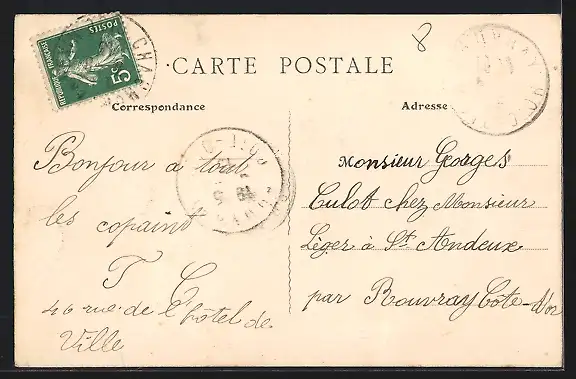 8
POSTES
5c
REPUBLIQUE FRANÇAISE
CARTE POSTALE
Correspondance
Adresse
Bonjour à tout
les copaint
T C
46 rue de l'hôtel de
Ville
Monsieur Georges
Culot chez Monsieur
Léger à St Andeux
par Rouvray Côte-d'or